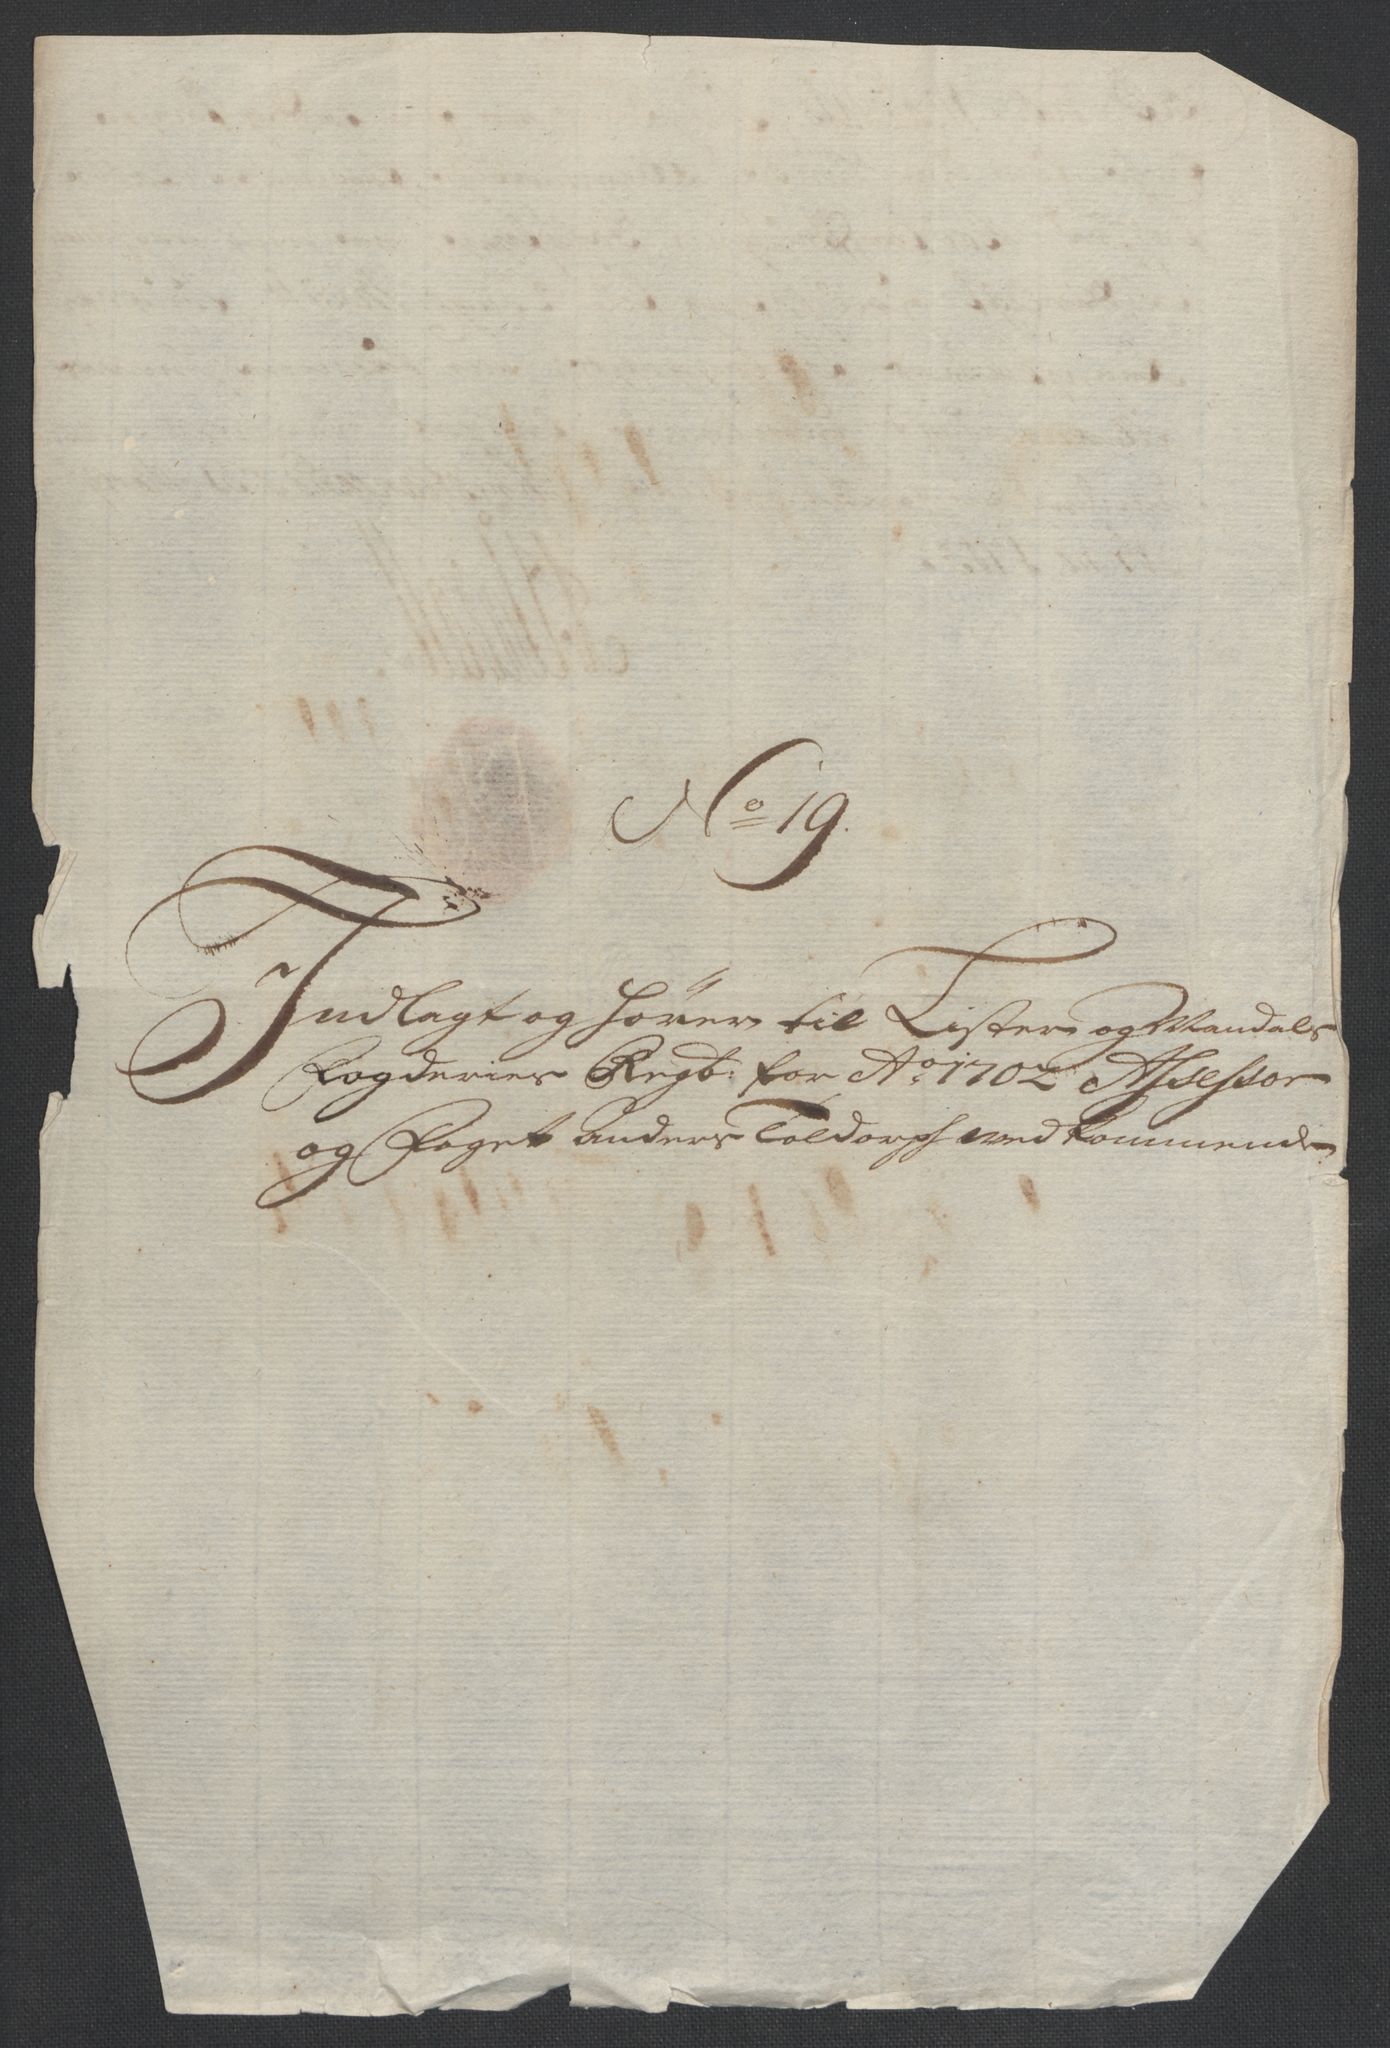 No 19.
Indlagt og hörer til Lister og Mandals
Fogderies Regb: for Ao 1702 Assessor
og Foget Anders Toldorph vedkommende